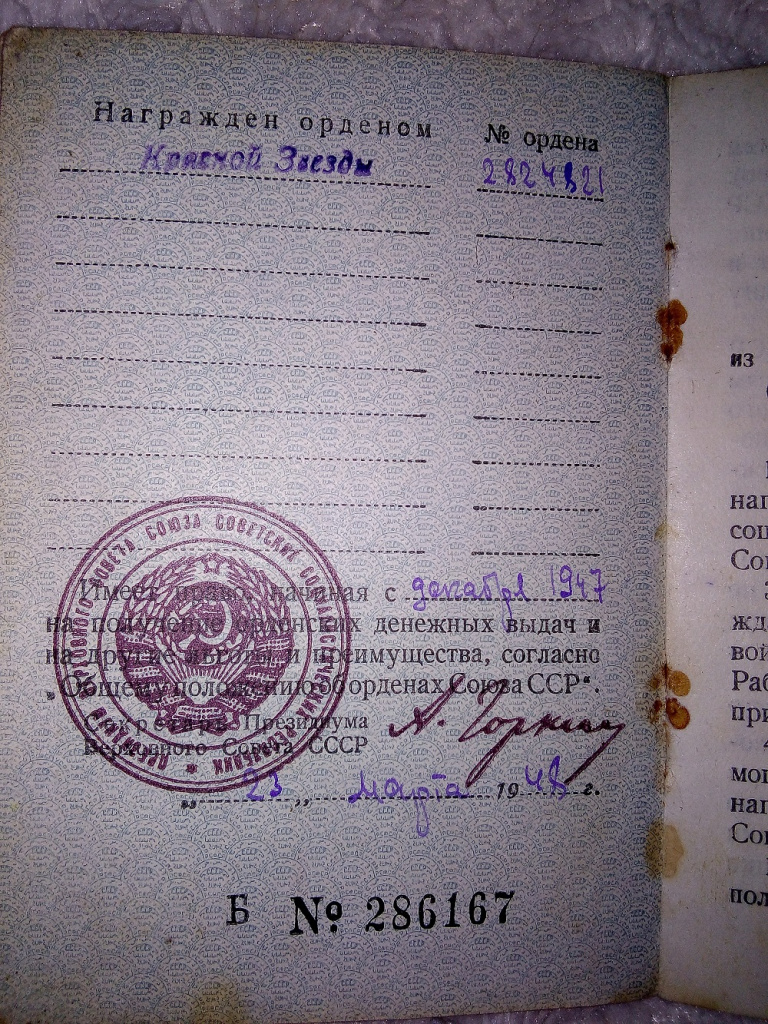 Награжден орденом
№ ордена
Красной Звезды
2824821
Имеет право, начиная с декабря 1947
на получение орденских денежных выдач и
на другие льготы и преимущества, согласно
„Общему положению об орденах Союза ССР“.
Секретарь Президиума
Верховного Совета СССР
А. Горкин
„ 23 „ марта 1948 г.
Б № 286167
из
наг
соц
Сов
жд
вой
Раб
при
мог
наг
Сов
пол